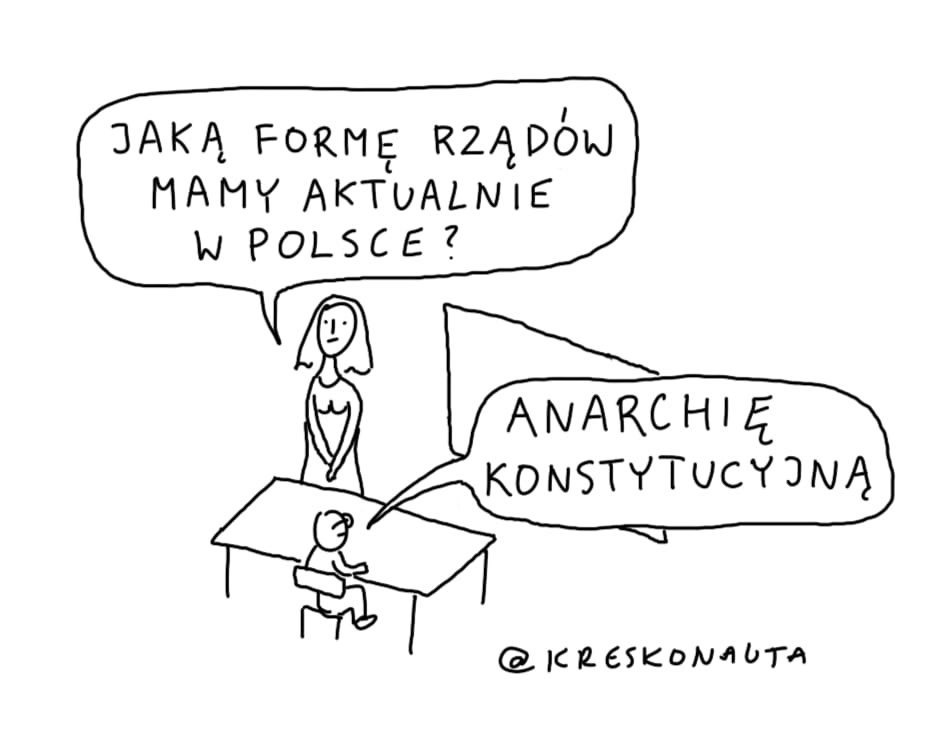 JAKĄ FORMĘ RZĄDÓW
MAMY AKTUALNIE
W POLSCE?
ANARCHIĘ
KONSTYTUCYJNĄ
@KRESKONAUTA